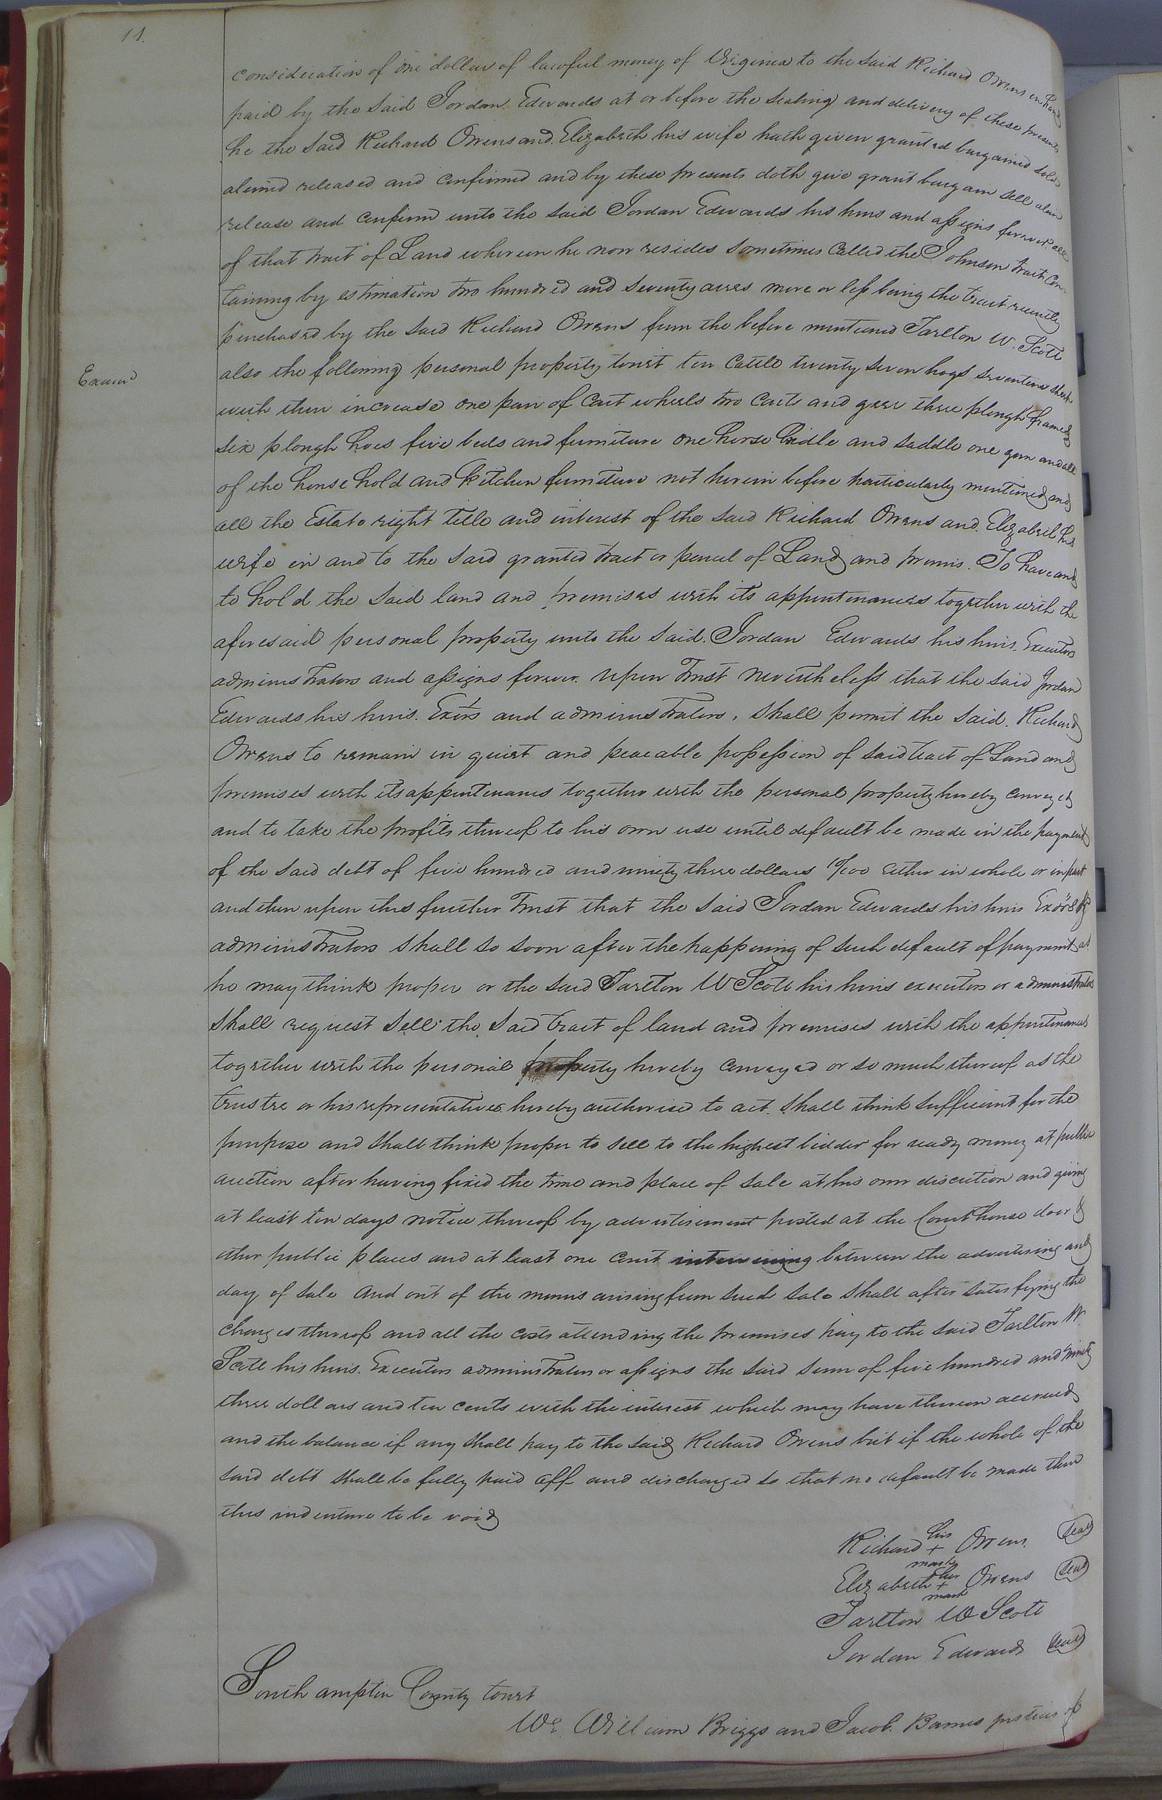 11.
consideration of one dollar of lawful money of Virginia to the said Richard Owens in hand
paid by the said Jordan Edwards at or before the sealing and delivery of these presents
he the said Richard Owens and Elizabeth his wife hath given granted bargained sold
aliened released and confirmed and by these presents doth give grant bargain sell alien
release and confirm unto the said Jordan Edwards his heirs and assigns forever all
of that tract of Land whereon he now resides sometimes called the Johnson tract con
taining by estimation two hundred and seventy acres more or less being the tract recently
purchased by the said Richard Owens from the before mentioned Tarlton W. Scott
also the following personal property towit ten Cattle twenty seven hogs seventeen
Examd
with their increase one pair of Cart wheels two Carts and gear three plough frames
six plough hoes five beds and furniture one horse bridle and saddle one gun and all
of the house hold and Kitchen furniture not herein before particularly mentioned and
all the Estate right title and interest of the said Richard Owens and Elizabeth his
wife in and to the said granted tract or parcel of Land and premis. To have and
to hold the said land and premises with its appurtenances together with the
aforesaid personal property unto the said Jordan Edwards his heirs. Executors
administrators and assigns forever. Upon Trust nevertheless that the said Jordan
Edwards his heirs. Exors and administrators, shall permit the said Richard
Owens to remain in quiet and peaceable possession of said tract of Land and
premises with its appurtenances together with the personal property hereby conveyed
and to take the profits thereof to his own use until default be made in the payment
of the said debt of five hundred and ninety three dollars 10/100 either in whole or in part
and then upon this further Trust that the said Jordan Edwards his heirs Exors &
administrators shall so soon after the happening of such default of payment as
he may think proper or the said Tarlton W Scott his heirs executors or administrators
shall request sell the said tract of land and premises with the appurtenances
together with the personal property hereby conveyed or so much thereof as the
trustee or his representatives hereby authorised to act shall think sufficient for the
purpose and shall think proper to sell to the highest bidder for ready money at public
auction after having fixed the time and place of sale at his own discretion and giving
at least ten days notice thereof by advertisement posted at the Courthouse door &
other public places and at least one court intervening between the advertising and
day of sale And out of the monies arising from such sale shall after satisfying the
charges thereof and all the costs attending the premises pay to the said Tarlton W.
Scott his heirs. Executors administrators or assigns the said sum of five hundred and ninety
three dollars and ten cents with the interest which may have thereon accrued
and the balance if any shall pay to the said Richard Owens but if the whole of the
said debt shall be fully paid off and discharged so that no default be made then
this indenture to be void
Richard his + mark Owens (Seal)
Elizabeth her + mark Owens (Seal)
Tarlton W Scott
Jordan Edwards (Seal)
Southampton County towit
We William Briggs and Jacob Barnes justices of